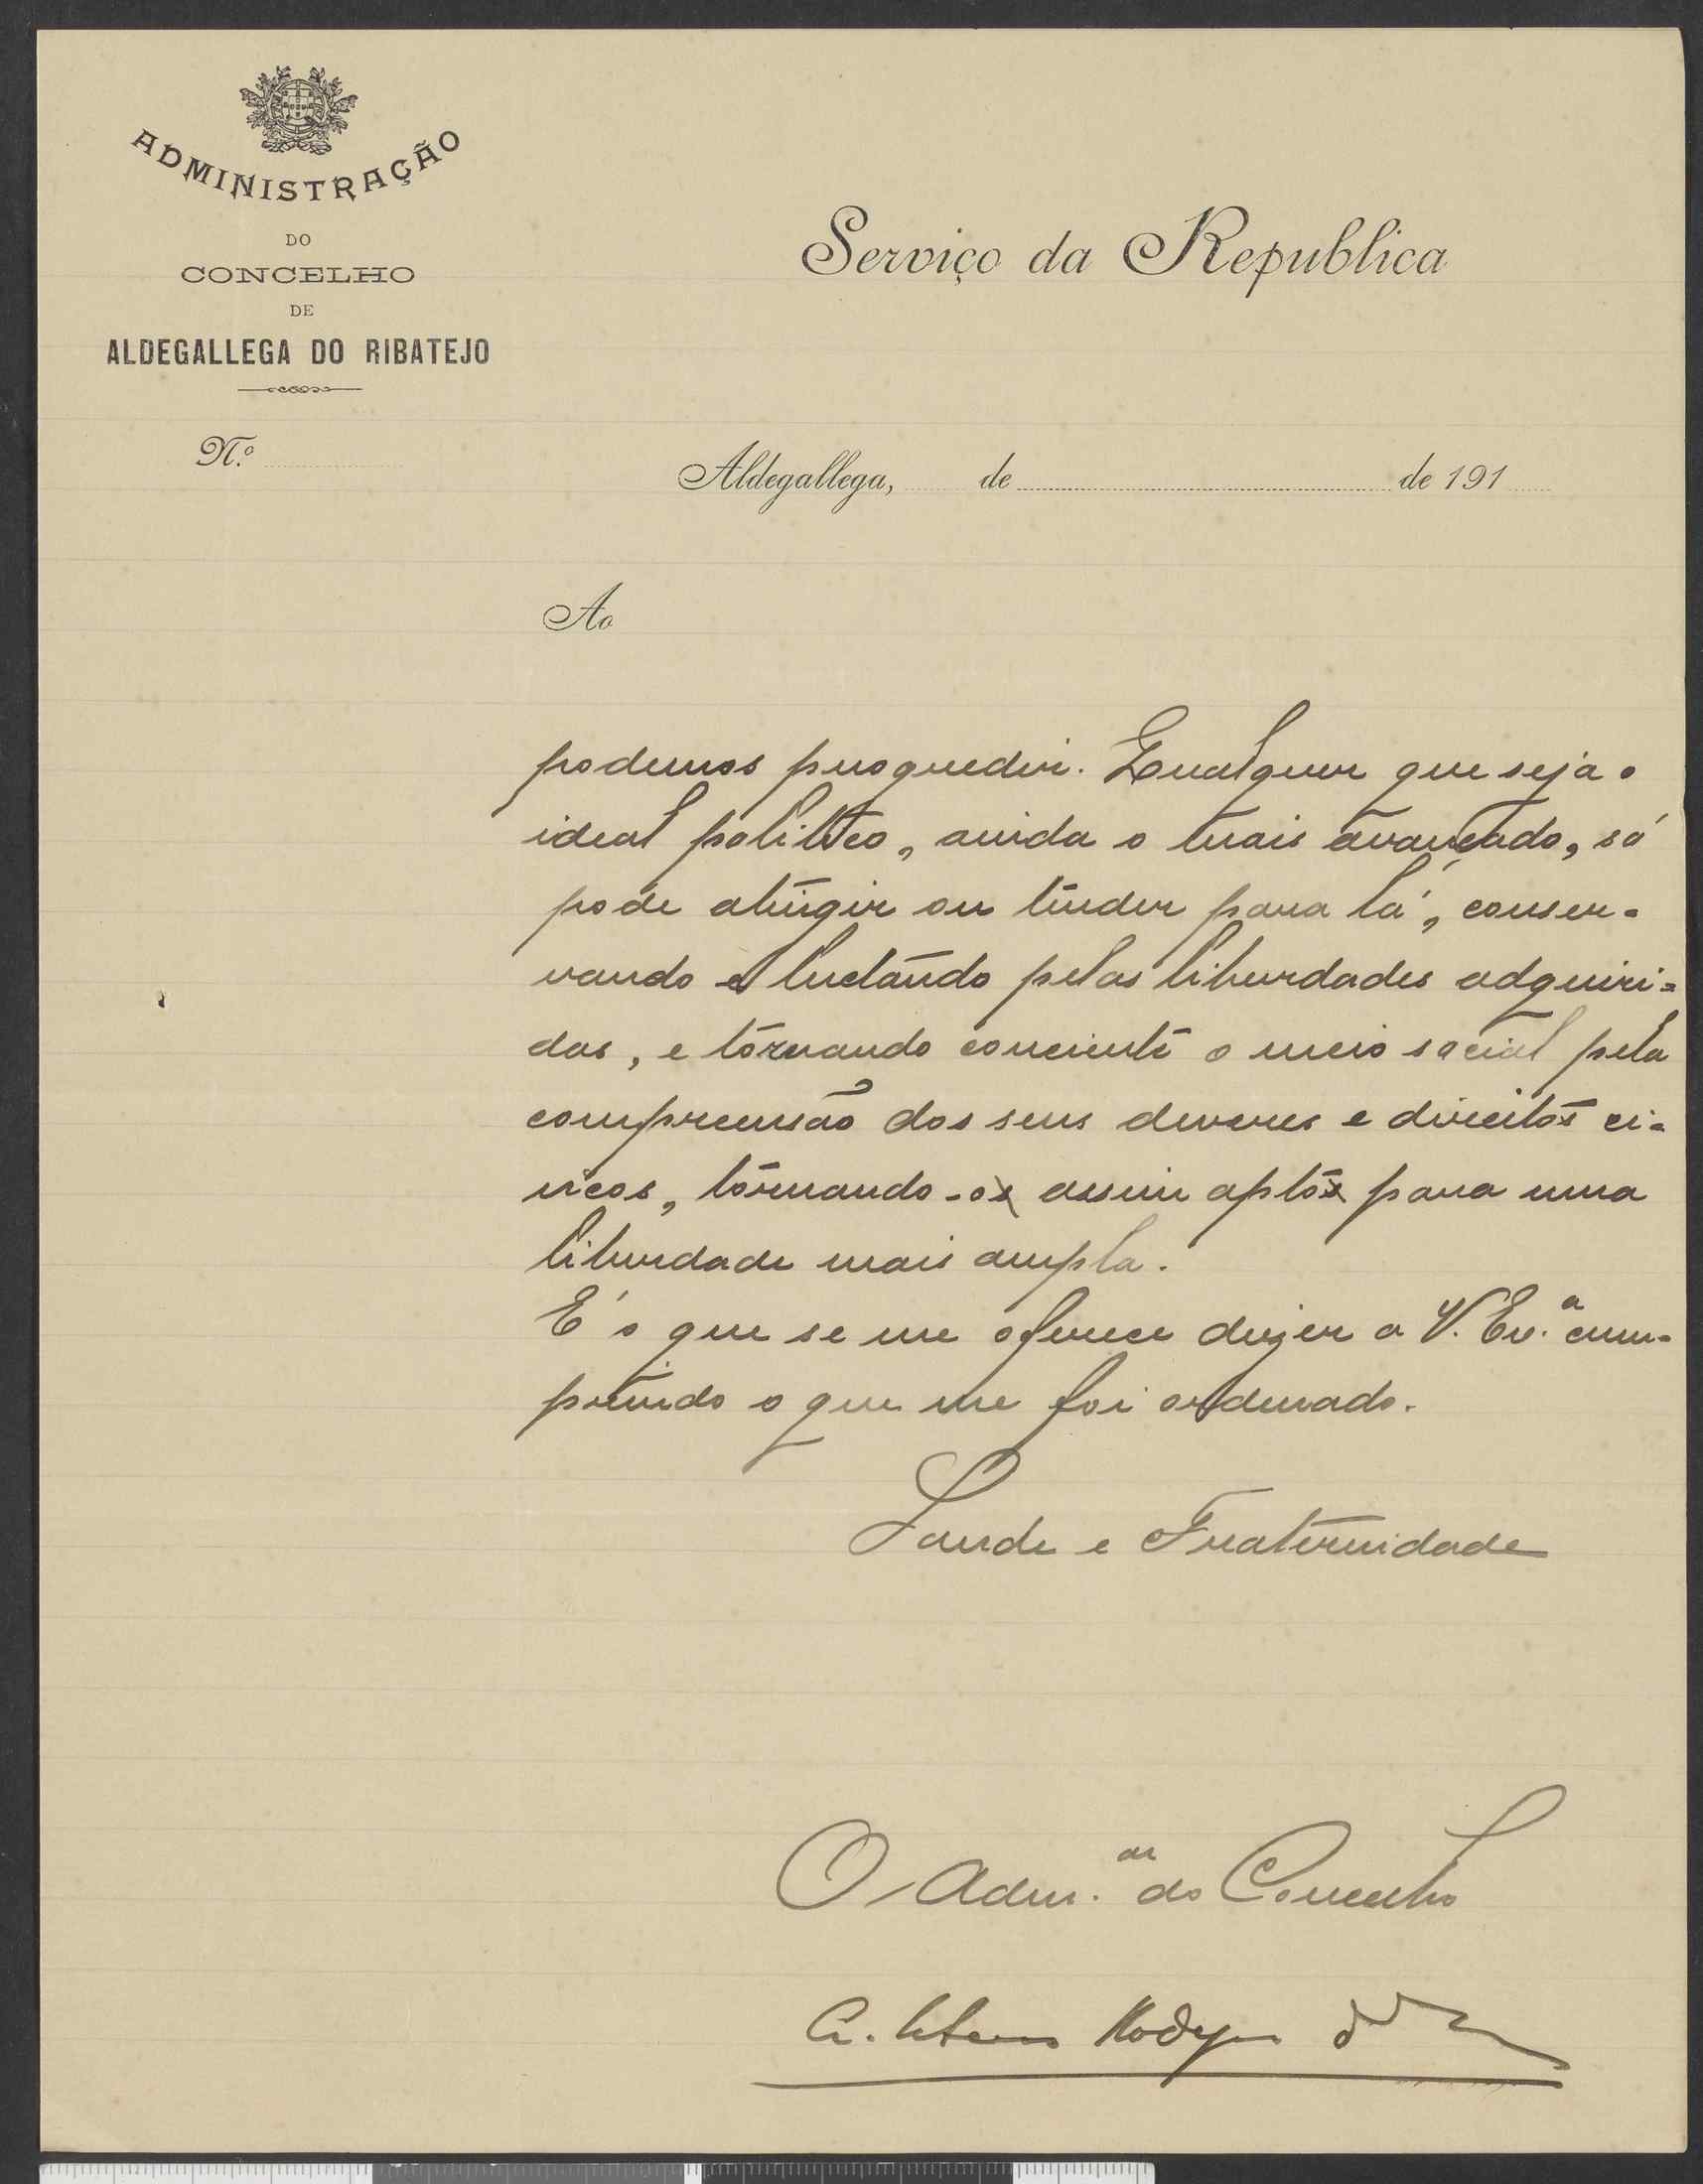 ADMINISTRAÇÃO
DO
CONCELHO
DE
ALDEGALLEGA DO RIBATEJO
Serviço da Republica
N.º
Aldegallega, de de 191
Ao
podemos progredir. Qualquer que seja o
ideal politico, ainda o mais avançado, só
póde atingir ou tender para lá, conser-
vando e luctando pelas liberdades adquiri-
das, e tornando conciente o meio social pela
compreensão dos seus deveres e direitos ci-
vicos, tornando-o assim apto para uma
liberdade mais ampla.
E' o que se me oferece dizer a V. Ex.ª cum-
prindo o que me foi ordenado.
Saude e Fraternidade
O Adm.or do Concelho